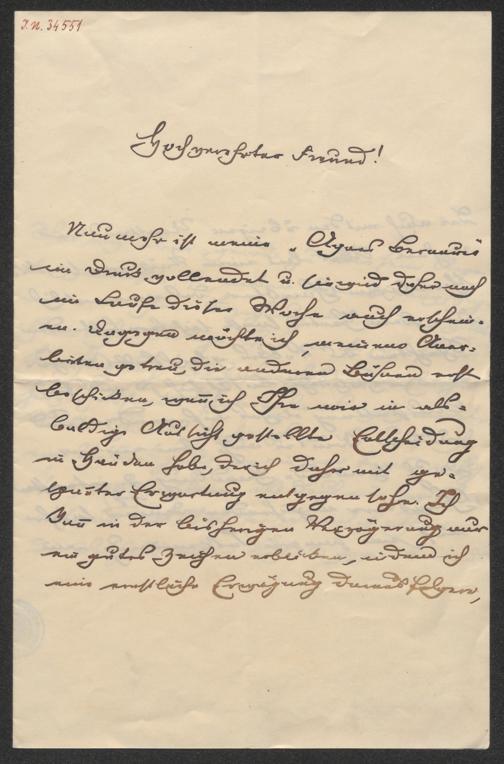 I.N. 34551
Hochverehrter Freund!
Nunmehr ist meine „Agnes Bernauer"
im Druck vollendet u. sie wird daher noch
im Laufe dieser Woche auch erschein-
en. Dagegen möchte ich, meinem Aner-
bieten getreu, die anderen Bühnen erst
beschicken, wenn ich Ihre mir in als-
baldige Aussicht gestellte Entscheidung
in Händen habe, der ich daher mit ge-
spannter Erwartung entgegen sehe. Ich
kann in der bisherigen Verzögerung nur
ein gutes Zeichen erblicken, indem ich
eine ernstliche Erwägung daraus folgere,